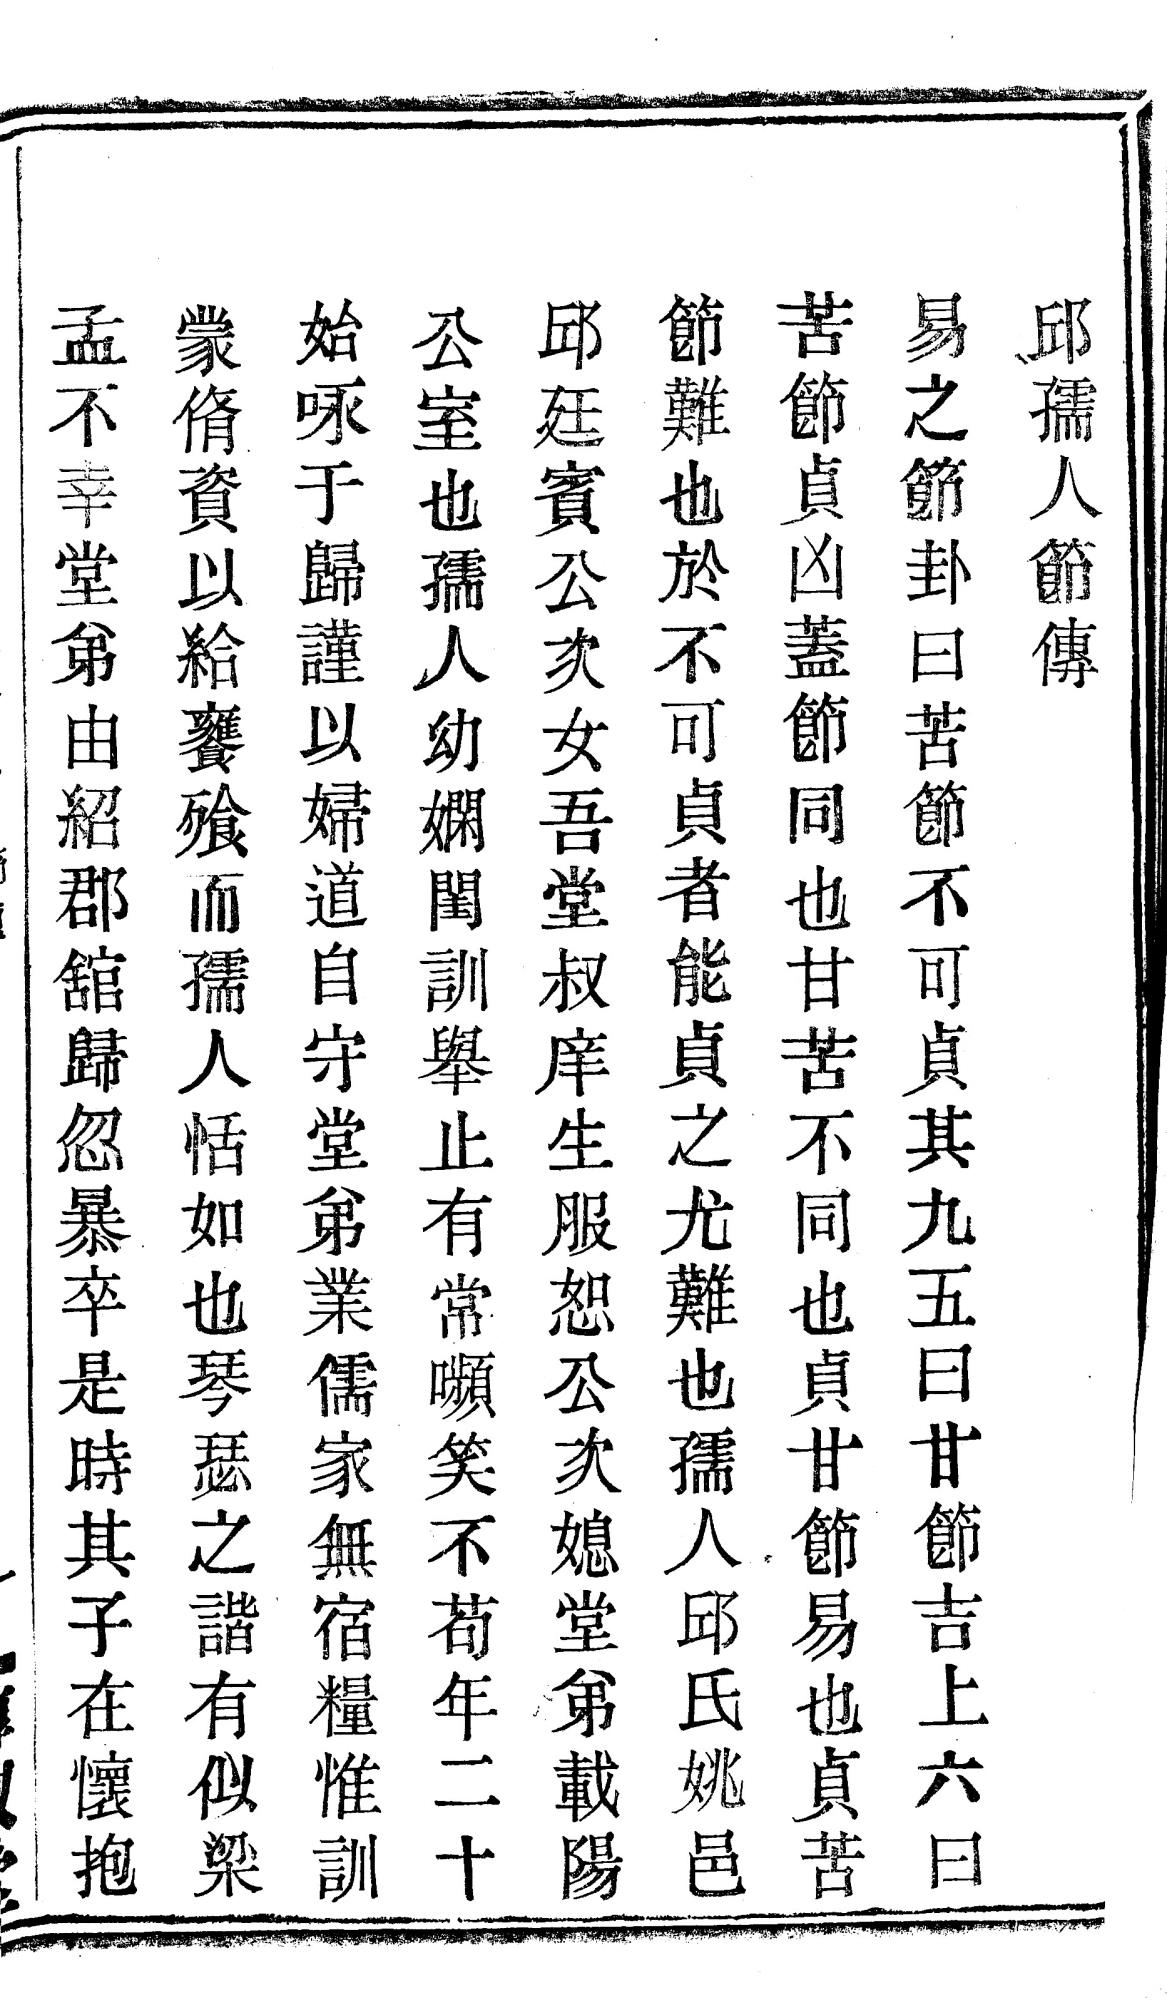 邱孺人節傳
易之節卦曰苦節不可貞其九五曰甘節吉上六曰
苦節貞凶蓋節同也甘苦不同也貞甘節易也貞苦
節難也於不可貞者能貞之尤難也孺人邱氏姚邑
邱廷賓公次女吾堂叔庠生服恕公次媳堂弟載陽
公室也孺人幼嫻閨訓舉止有常嚬笑不苟年二十
始咏于歸謹以婦道自守堂弟業儒家無宿糧惟訓
蒙脩資以給饔飱而孺人恬如也琴瑟之諧有似梁
孟不幸堂弟由紹郡舘歸忽暴卒是時其子在懷抱